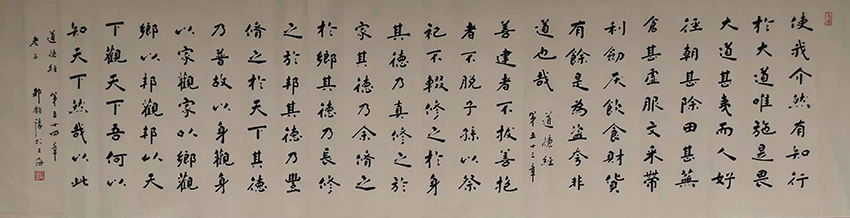 使我介然有知行
於大道唯施是畏
大道甚夷而人好
徑朝甚除田甚蕪
倉甚虛服文采帶
利劍厌飲食財貨
有餘是為盜夸非
道也哉 道德經
第五十三章
善建者不拔善抱
者不脫子孫以祭
祀不輟修之於身
其德乃真修之於
家其德乃余修之
於鄉其德乃長修
之於邦其德乃豐
脩之於天下其德
乃普故以身觀身
以家觀家以鄉觀
鄉以邦觀邦以天
下觀天下吾何以
知天下然哉以此
道德經 第五十四章
老子 上海